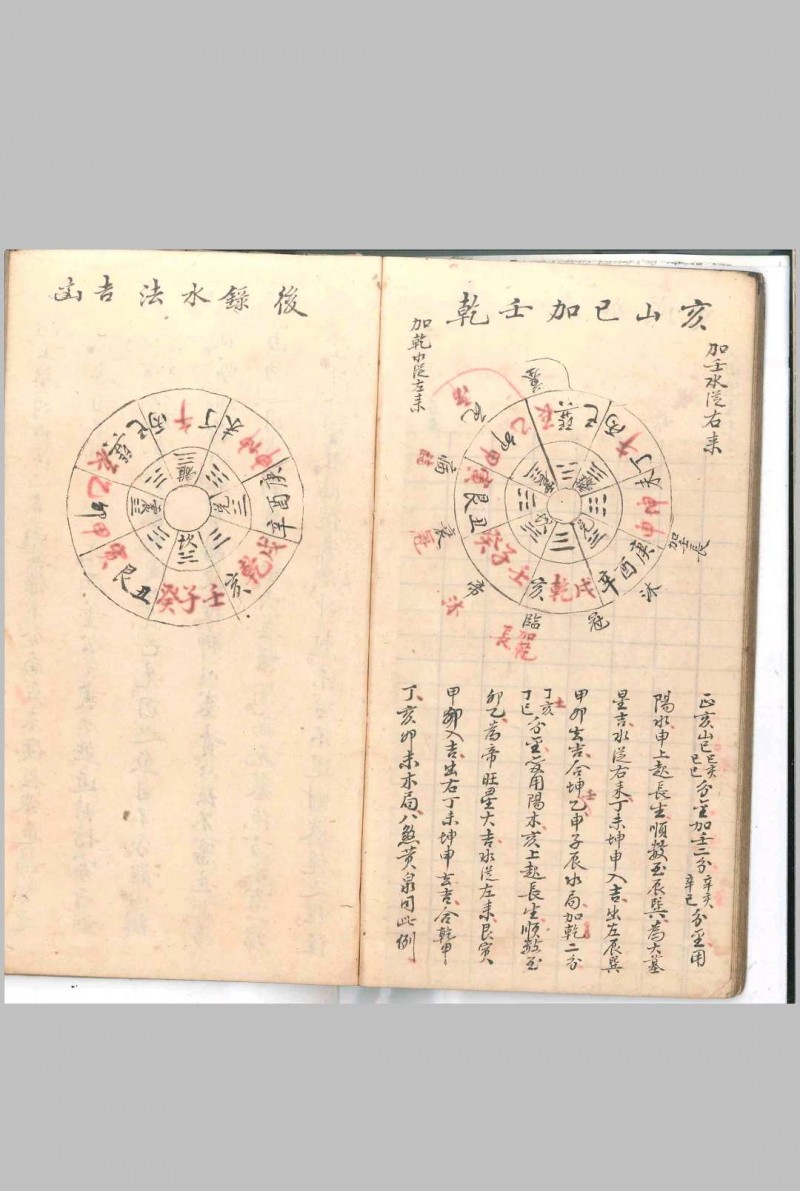 亥山巳加壬乾
加壬水從右来
加乾水從左来
巽
辰
巳丙
午
丁未
坤申
庚酉辛
戌乾
亥
壬子癸
丑艮
寅甲
卯乙
離
震
兌
坎
病
衰
冠
帝
沐
臨
加乾
長
冠
沐
加壬長
正亥山巳巳亥己巳分金加壬二分辛亥辛巳分金用
陽水申上起長生順数至辰巽為大墓
星吉水從右来丁未坤申入吉出左辰巽
甲卯去吉合坤壬乙申子辰水局加乾二分
丁亥丁巳分金宜用陽木亥上起長生順数至
卯乙為帝旺星大吉水從左来艮寅
甲卯入吉出右丁未坤申去吉合乾甲
丁亥卯未木局八煞黃泉同此例
後錄水法吉凶
丙巳
午
丁未
坤申
庚酉辛
戌乾
亥
壬子癸
丑艮
寅
甲卯
乙
辰
巽
離
震
兌
坎